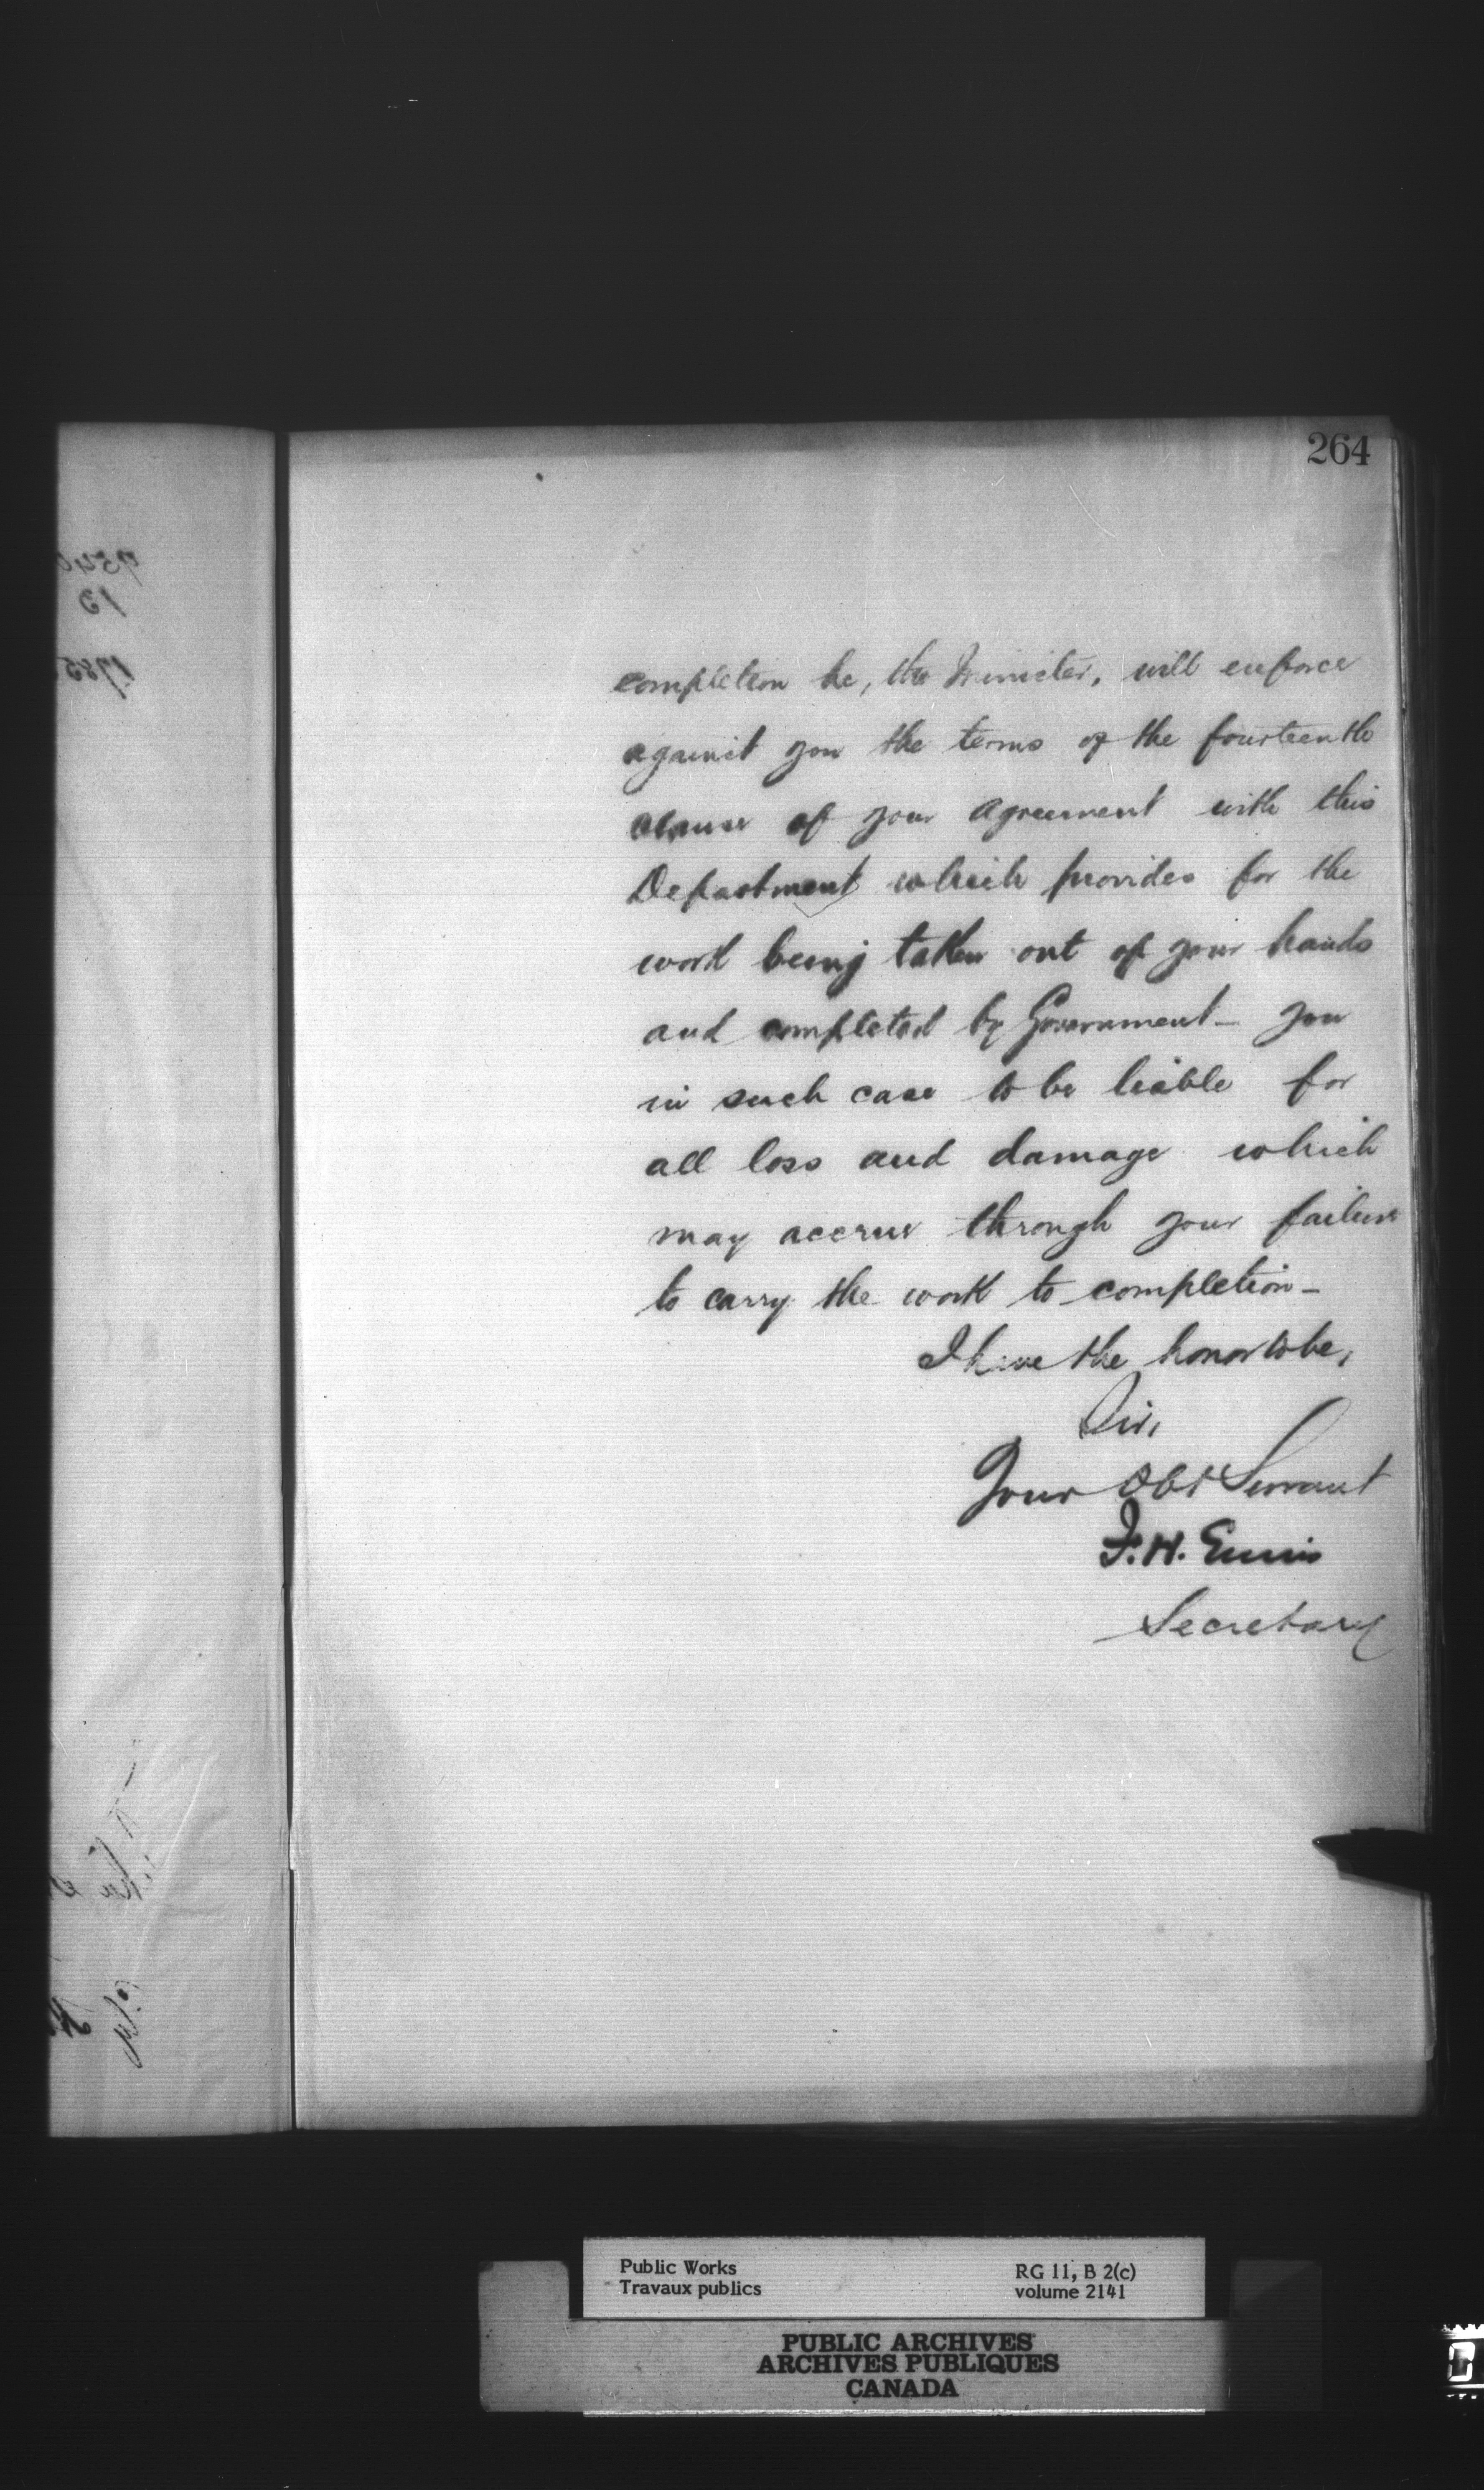 264
completion he, the Minister, will enforce
against you the terms of the fourteenth
clause of your agreement with this
Department which provides for the
work being taken out of your hands
and completed by Government - you
in such case to be liable for
all loss and damage which
may accrue through your failure
to carry the work to completion -
I have the honor to be,
Sir,
Your Obt Servant
F. H. Ennis
Secretary
Public Works
Travaux publics
RG 11, B 2(c)
volume 2141
PUBLIC ARCHIVES
ARCHIVES PUBLIQUES
CANADA